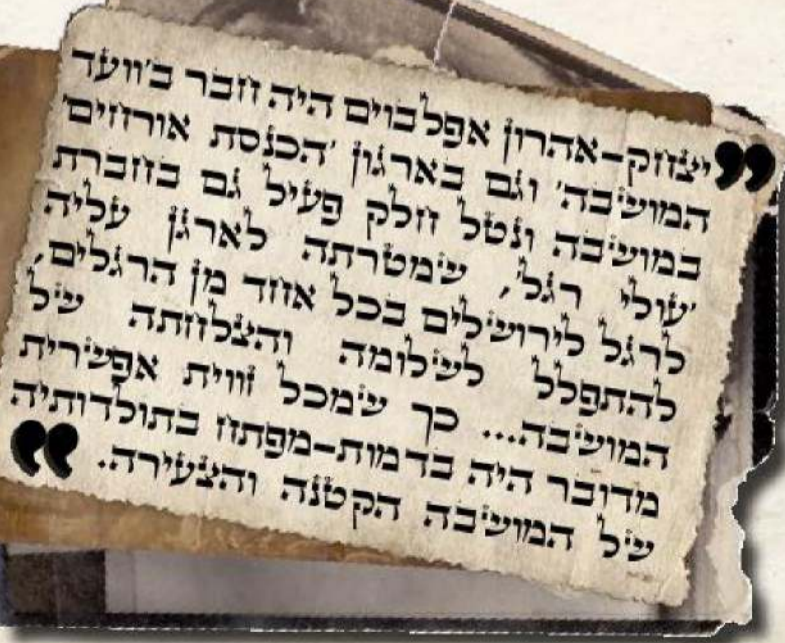 "יצחק-אהרון אפלבוים היה חבר ב'וועד
המושבה' וגם בארגון 'הכנסת אורחים'
במושבה ונטל חלק פעיל גם בחברת
'עולי רגל', שמטרתה לארגן עליה
לרגל לירושלים בכל אחד מן הרגלים,
להתפלל לשלומה והצלחתה של
המושבה... כך שמכל זווית אפשרית
מדובר היה בדמות-מפתח בתולדותיה
של המושבה הקטנה והצעירה."